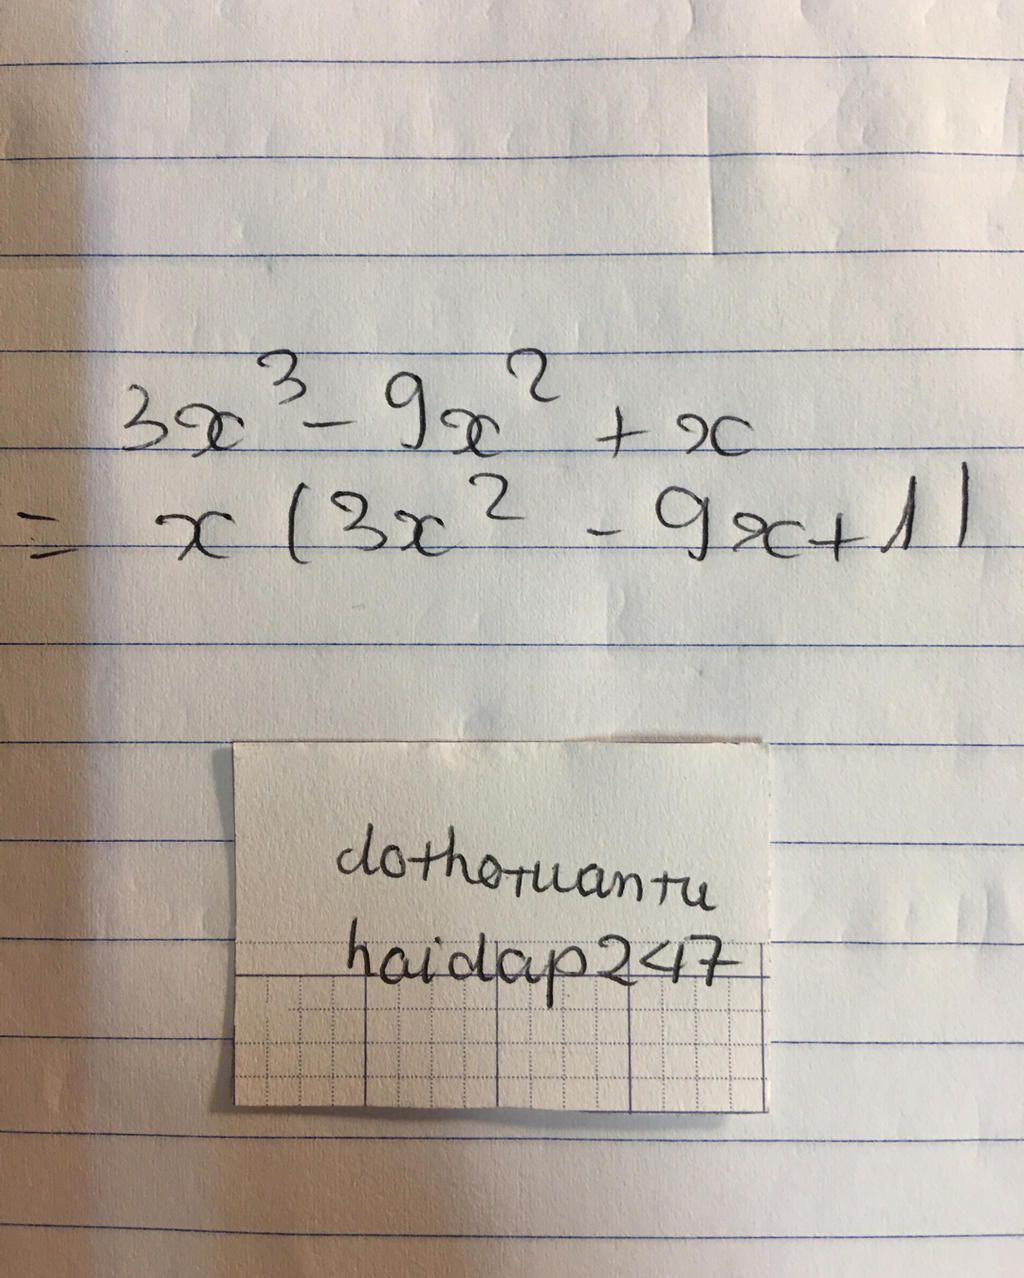 3x³ - 9x² + x
= x (3x² - 9x + 1)
dothotuantu
haidap247